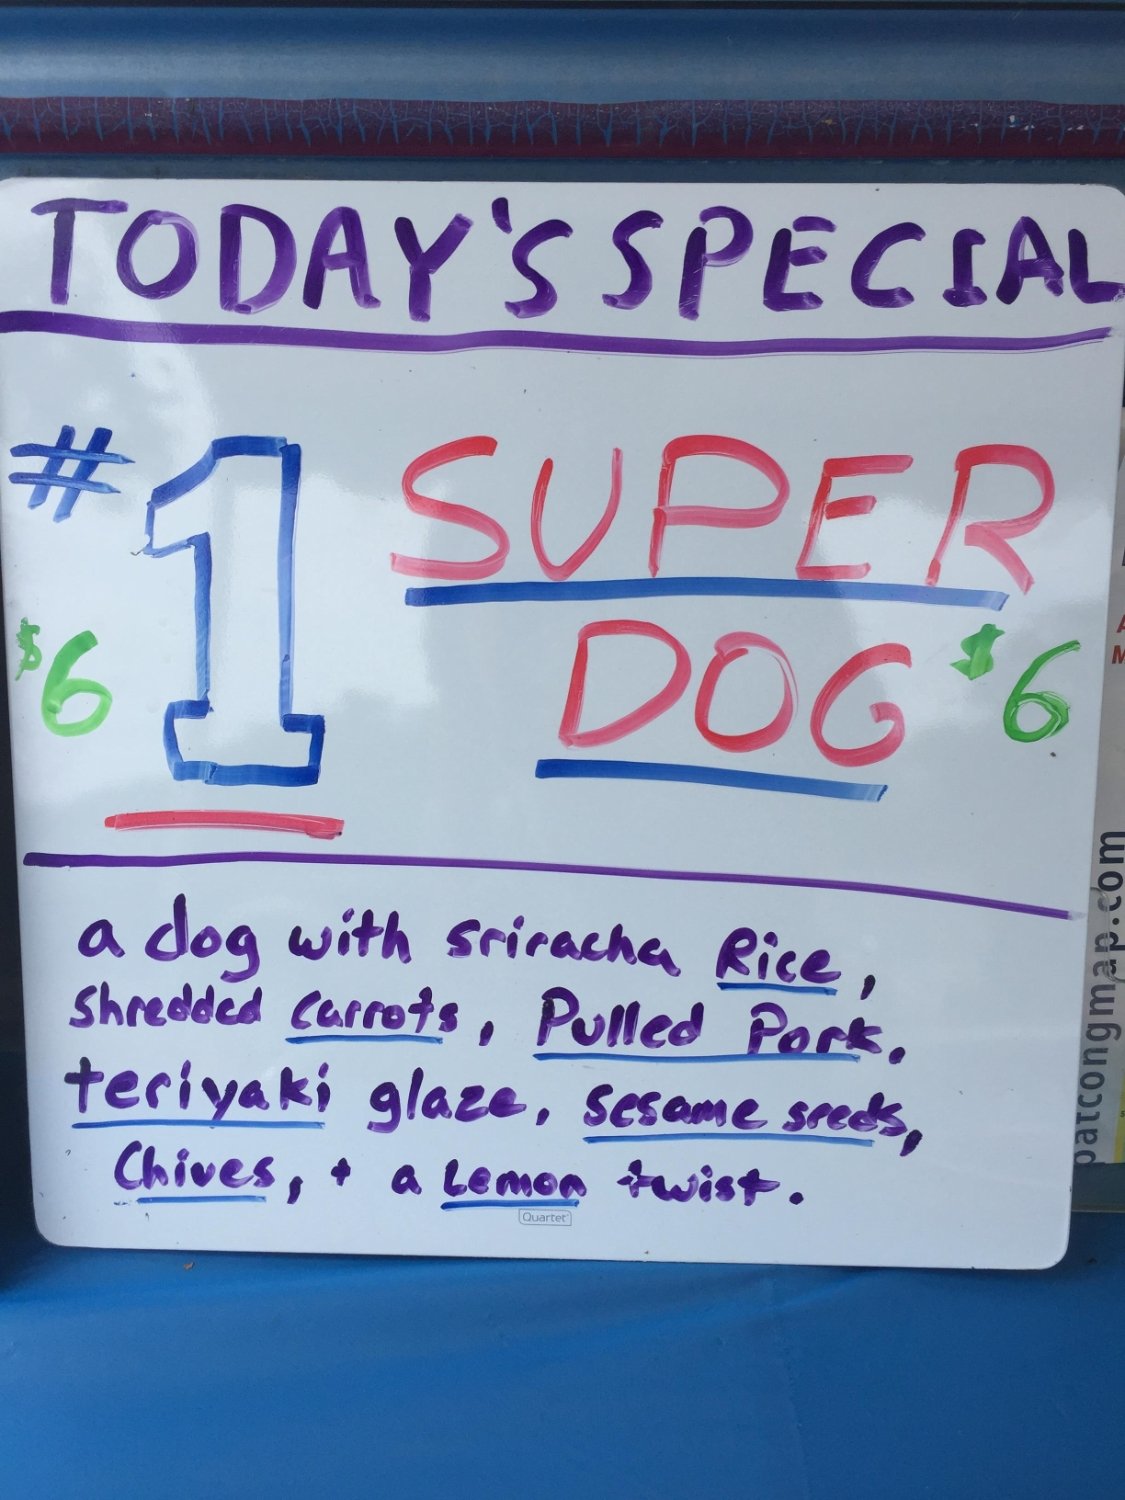 TODAY'S SPECIAL
#1 SUPER
$6 DOG $6
a dog with sriracha Rice,
Shredded Carrots, Pulled Pork,
teriyaki glaze, sesame seeds,
Chives, + a Lemon twist.
Quartet
patcongmap.com